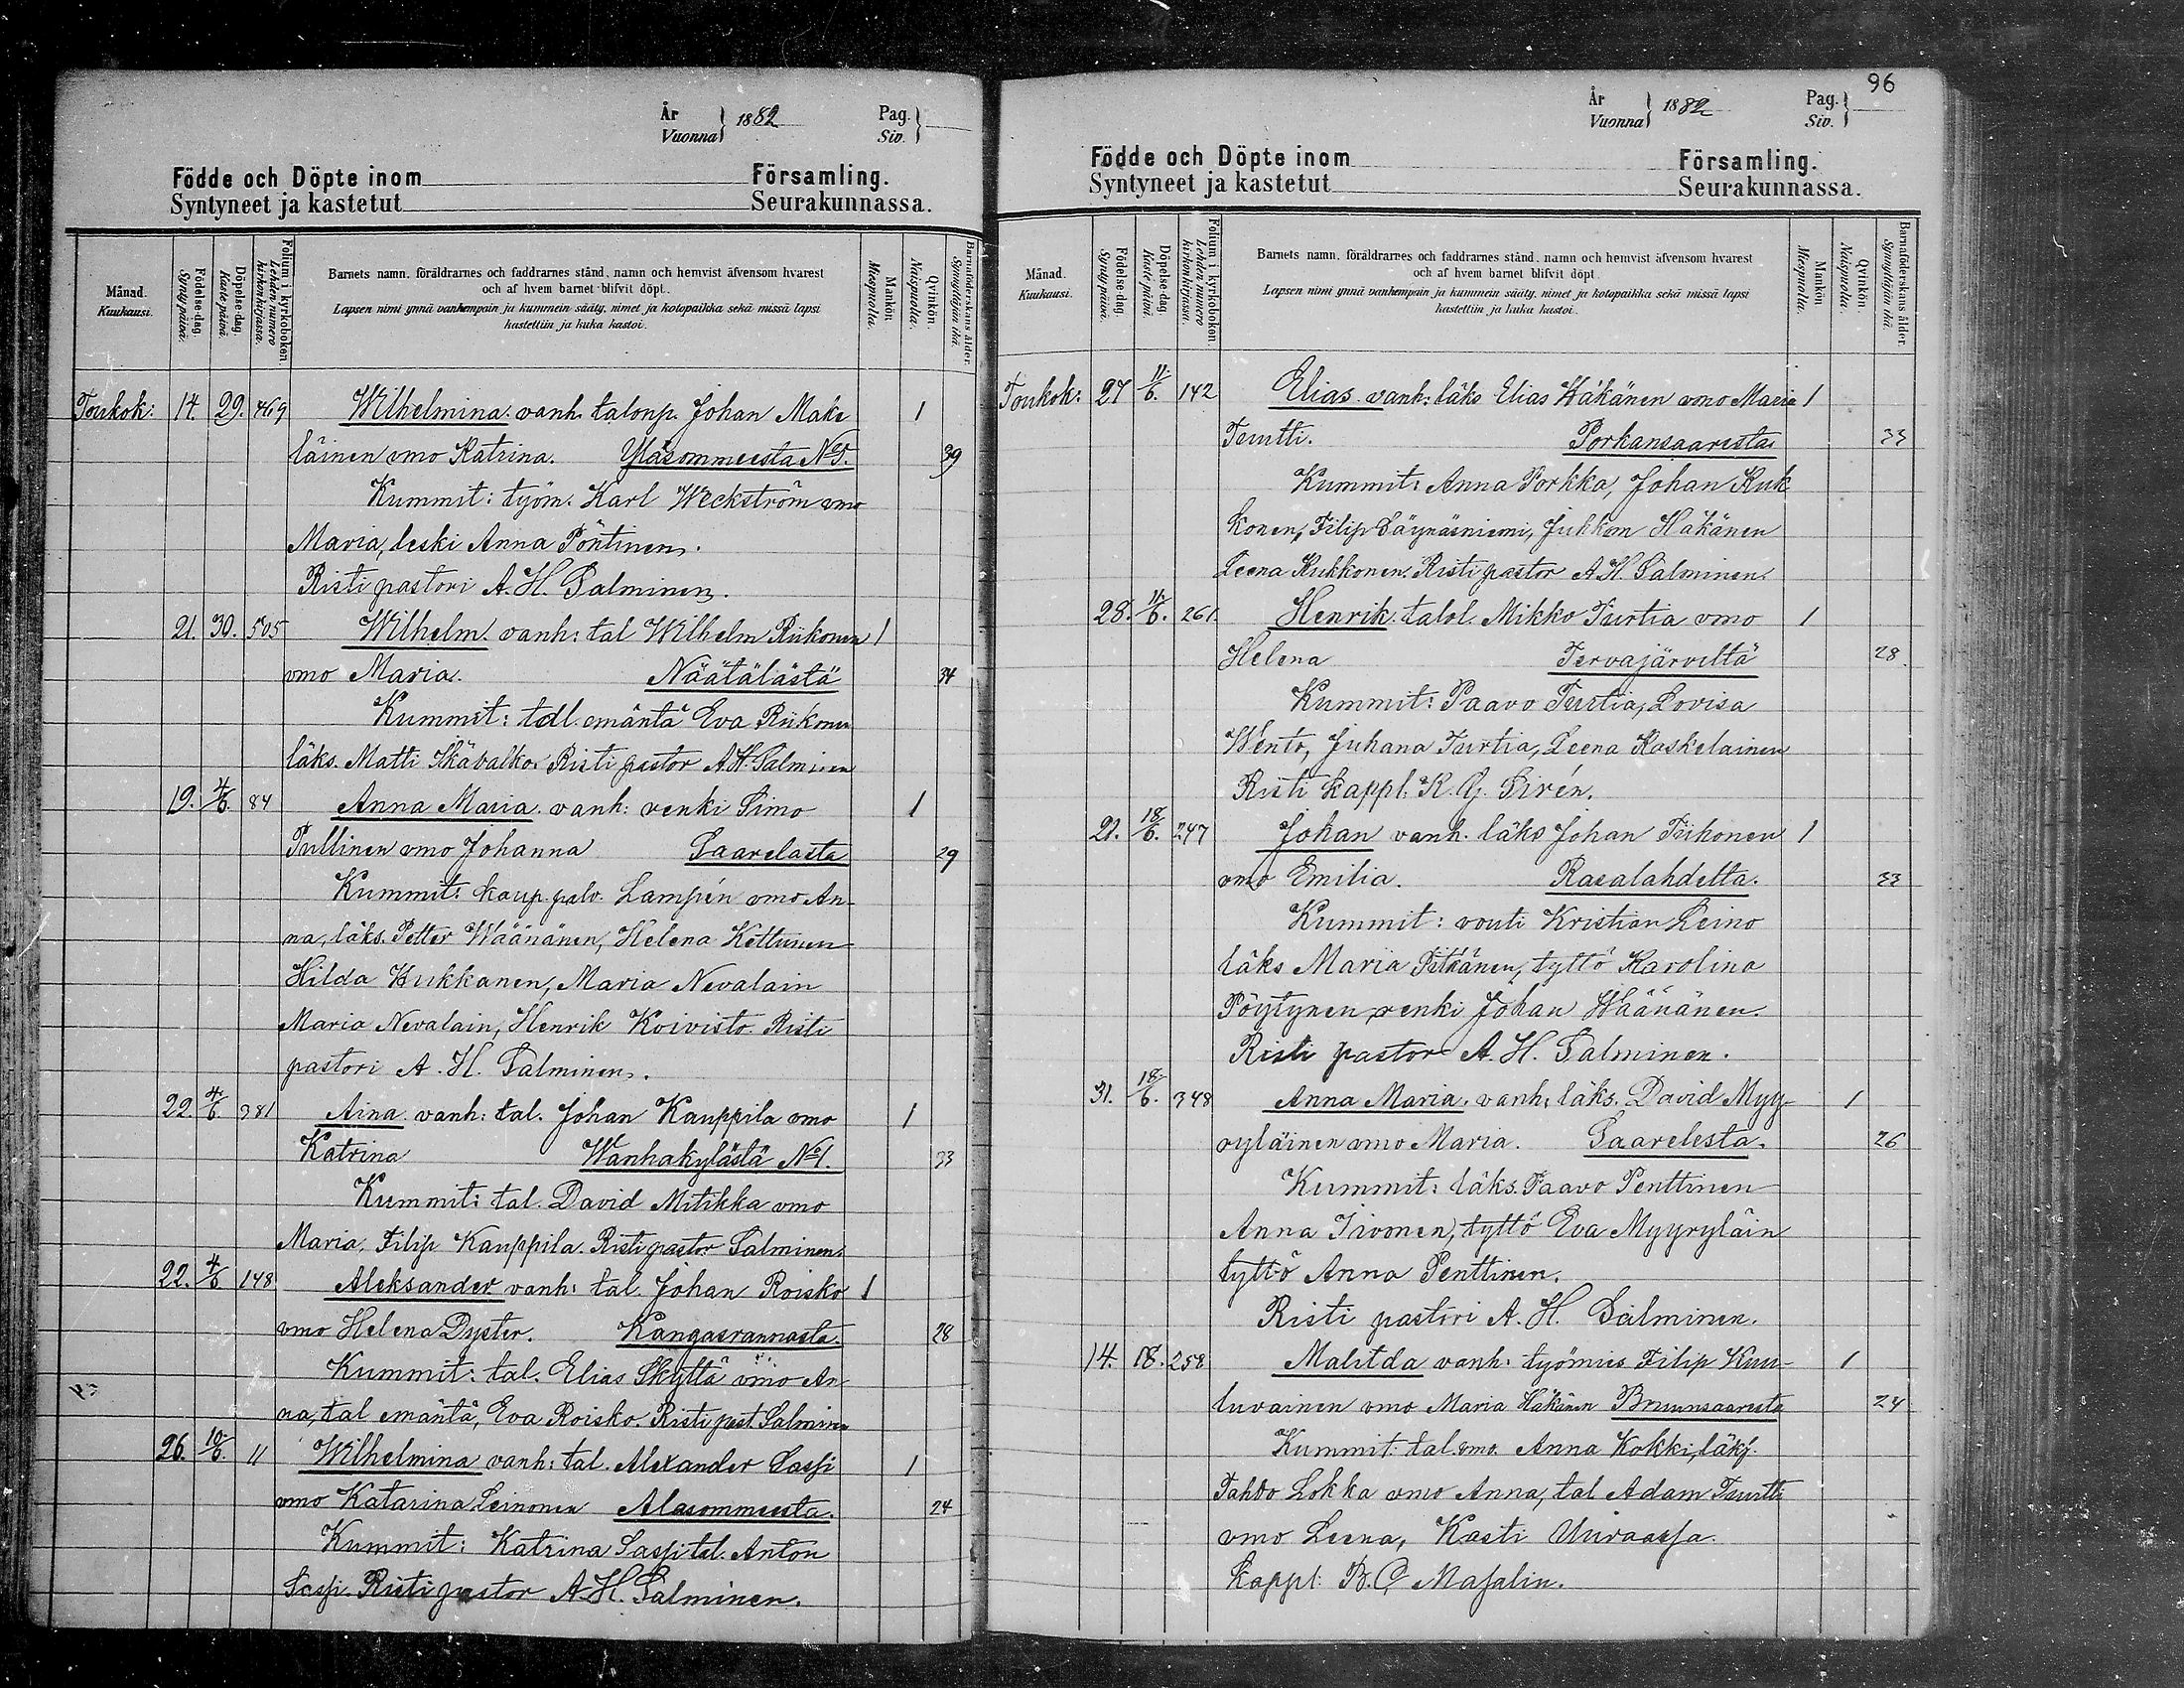 År
Vuonna } 1882 Pag.
Siv. }
Födde och Döpte inom Församling.
Syntyneet ja kastetut Seurakunnassa.
Månad.
Kuukausi.
Födelse-dag.
Syntypäivä.
Döpelse-dag.
Kastepäivä.
Folium i kyrkoboken.
Lehden numero kirkonkirjassa.
Barnets namn, föräldrarnes och faddrarnes stånd, namn och hemvist äfvensom hvarest
och af hvem barnet blifvit döpt.
Lapsen nimi ynnä vanhempain ja kummein sääty, nimet ja kotopaikka sekä missä lapsi
kastettiin ja kuka kastoi.
Mankön.
Miespuolia.
Qvinkön.
Naispuolia.
Barnaföderskans ålder.
Synnyttäjän ikä.
Toukok: 14. 29. 469 Wilhelmina. vanh. talonp. Johan Make 1
läinen vmo Katrina. Yläsommeesta No 5. 39
Kummit: työm. Karl Weckström vmo
Maria, leski Anna Pöntinen.
Risti pastori A. H. Salminen.
21. 30. 505 Wilhelm. vanh: tal Wilhelm Riikonen 1
vmo Maria. Näätälästä 34
Kummit: tall. emäntä Eva Riikonen
läks. Matti Ikävalko. Risti pastor A. H. Salminen
19. 4/6. 84 Anna Maria. vanh: renki Simo 1
Pullinen vmo Johanna Saarelasta 29
Kummit: kaup. palv. Lampén vmo An-
na, läks. Petter Wäänänen, Helena Kettunen
Hilda Hukkanen, Maria Nevalain
Maria Nevalain, Henrik Koivisto. Risti
pastori A. H. Salminen.
22. 4/6 381 Aina. vanh: tal. Johan Kauppila vmo 1
Katrina Wanhakylästä No 1. 33
Kummit: tal. David Mitikka vmo
Maria, Filip Kauppila. Risti pastor Salminen.
22. 4/6 148 Aleksander vanh: tal. Johan Roisko 1
vmo Helena Dyster. Kangasrannasta. 28
Kummit: tal. Elias Skyttä vmo An
na, tal emäntä, Eva Roisko. Risti past. Salminen
26. 10/6. 11 Wilhelmina vanh: tal. Alexander Sassi 1
vmo Katarina Leinonen Alasommeesta. 24
Kummit: Katrina Sassi tal. Anton
Sassi. Risti pastor A. H. Salminen.
96
År
Vuonna } 1882 Pag.
Siv. }
Födde och Döpte inom Församling.
Syntyneet ja kastetut Seurakunnassa.
Månad.
Kuukausi.
Födelse-dag.
Syntypäivä.
Döpelse-dag.
Kastepäivä.
Folium i kyrkoboken.
Lehden numero kirkonkirjassa.
Barnets namn, föräldrarnes och faddrarnes stånd, namn och hemvist äfvensom hvarest
och af hvem barnet blifvit döpt.
Lapsen nimi ynnä vanhempain ja kummein sääty, nimet ja kotopaikka sekä missä lapsi
kastettiin ja kuka kastoi.
Mankön.
Miespuolia.
Qvinkön.
Naispuolia.
Barnaföderskans ålder.
Synnyttäjän ikä.
Toukok: 27 11/6. 142 Elias. vanh: läks Elias Häkänen vmo Maria 1
Teurtti. Porkansaaresta 33
Kummit: Anna Porkka, Johan Kuk
konen, Filip Säynäsniemi, Juhkom Häkänen
Leena Kukkonen. Risti pastor A. H. Salminen.
28. 11/6. 261. Henrik. talol. Mikko Turtia vmo 1
Helena Tervajärveltä 28.
Kummit: Paavo Turtia, Lovisa
Wento, Juhana Turtia, Leena Kaskelainen
Risti kappl. K. G. Sirén.
21. 18/6. 247 Johan vanh. läks Johan Tiikonen 1
vmo Emilia. Rasalahdelta. 33
Kummit: vouti Kristian Leino
läks Maria Pitkänen, tyttö Karolina
Pöytynen, renki Johan Wäänänen.
Risti pastor A. H. Salminen.
31. 18/6. 348 Anna Maria. vanh: läks. David Myy- 1
ryläinen vmo Maria. Saarelesta. 26
Kummit: läks. Paavo Penttinen
Anna Iivonen, tyttö Eva Myyryläin
tyttö Anna Penttinen.
Risti pastori A. H. Salminen.
14. 18. 258 Malitda vanh. työmies Filip Kuu- 1
luvainen vmo Maria Häkänen Bruunsaaresta 24
Kummit: tal. vmo. Anna Kokki, läks.
Tahvo Lokka vmo Anna, tal Adam Teurtti
vmo Leena, Kasti Uuraassa.
kappl: B. C. Masalin.